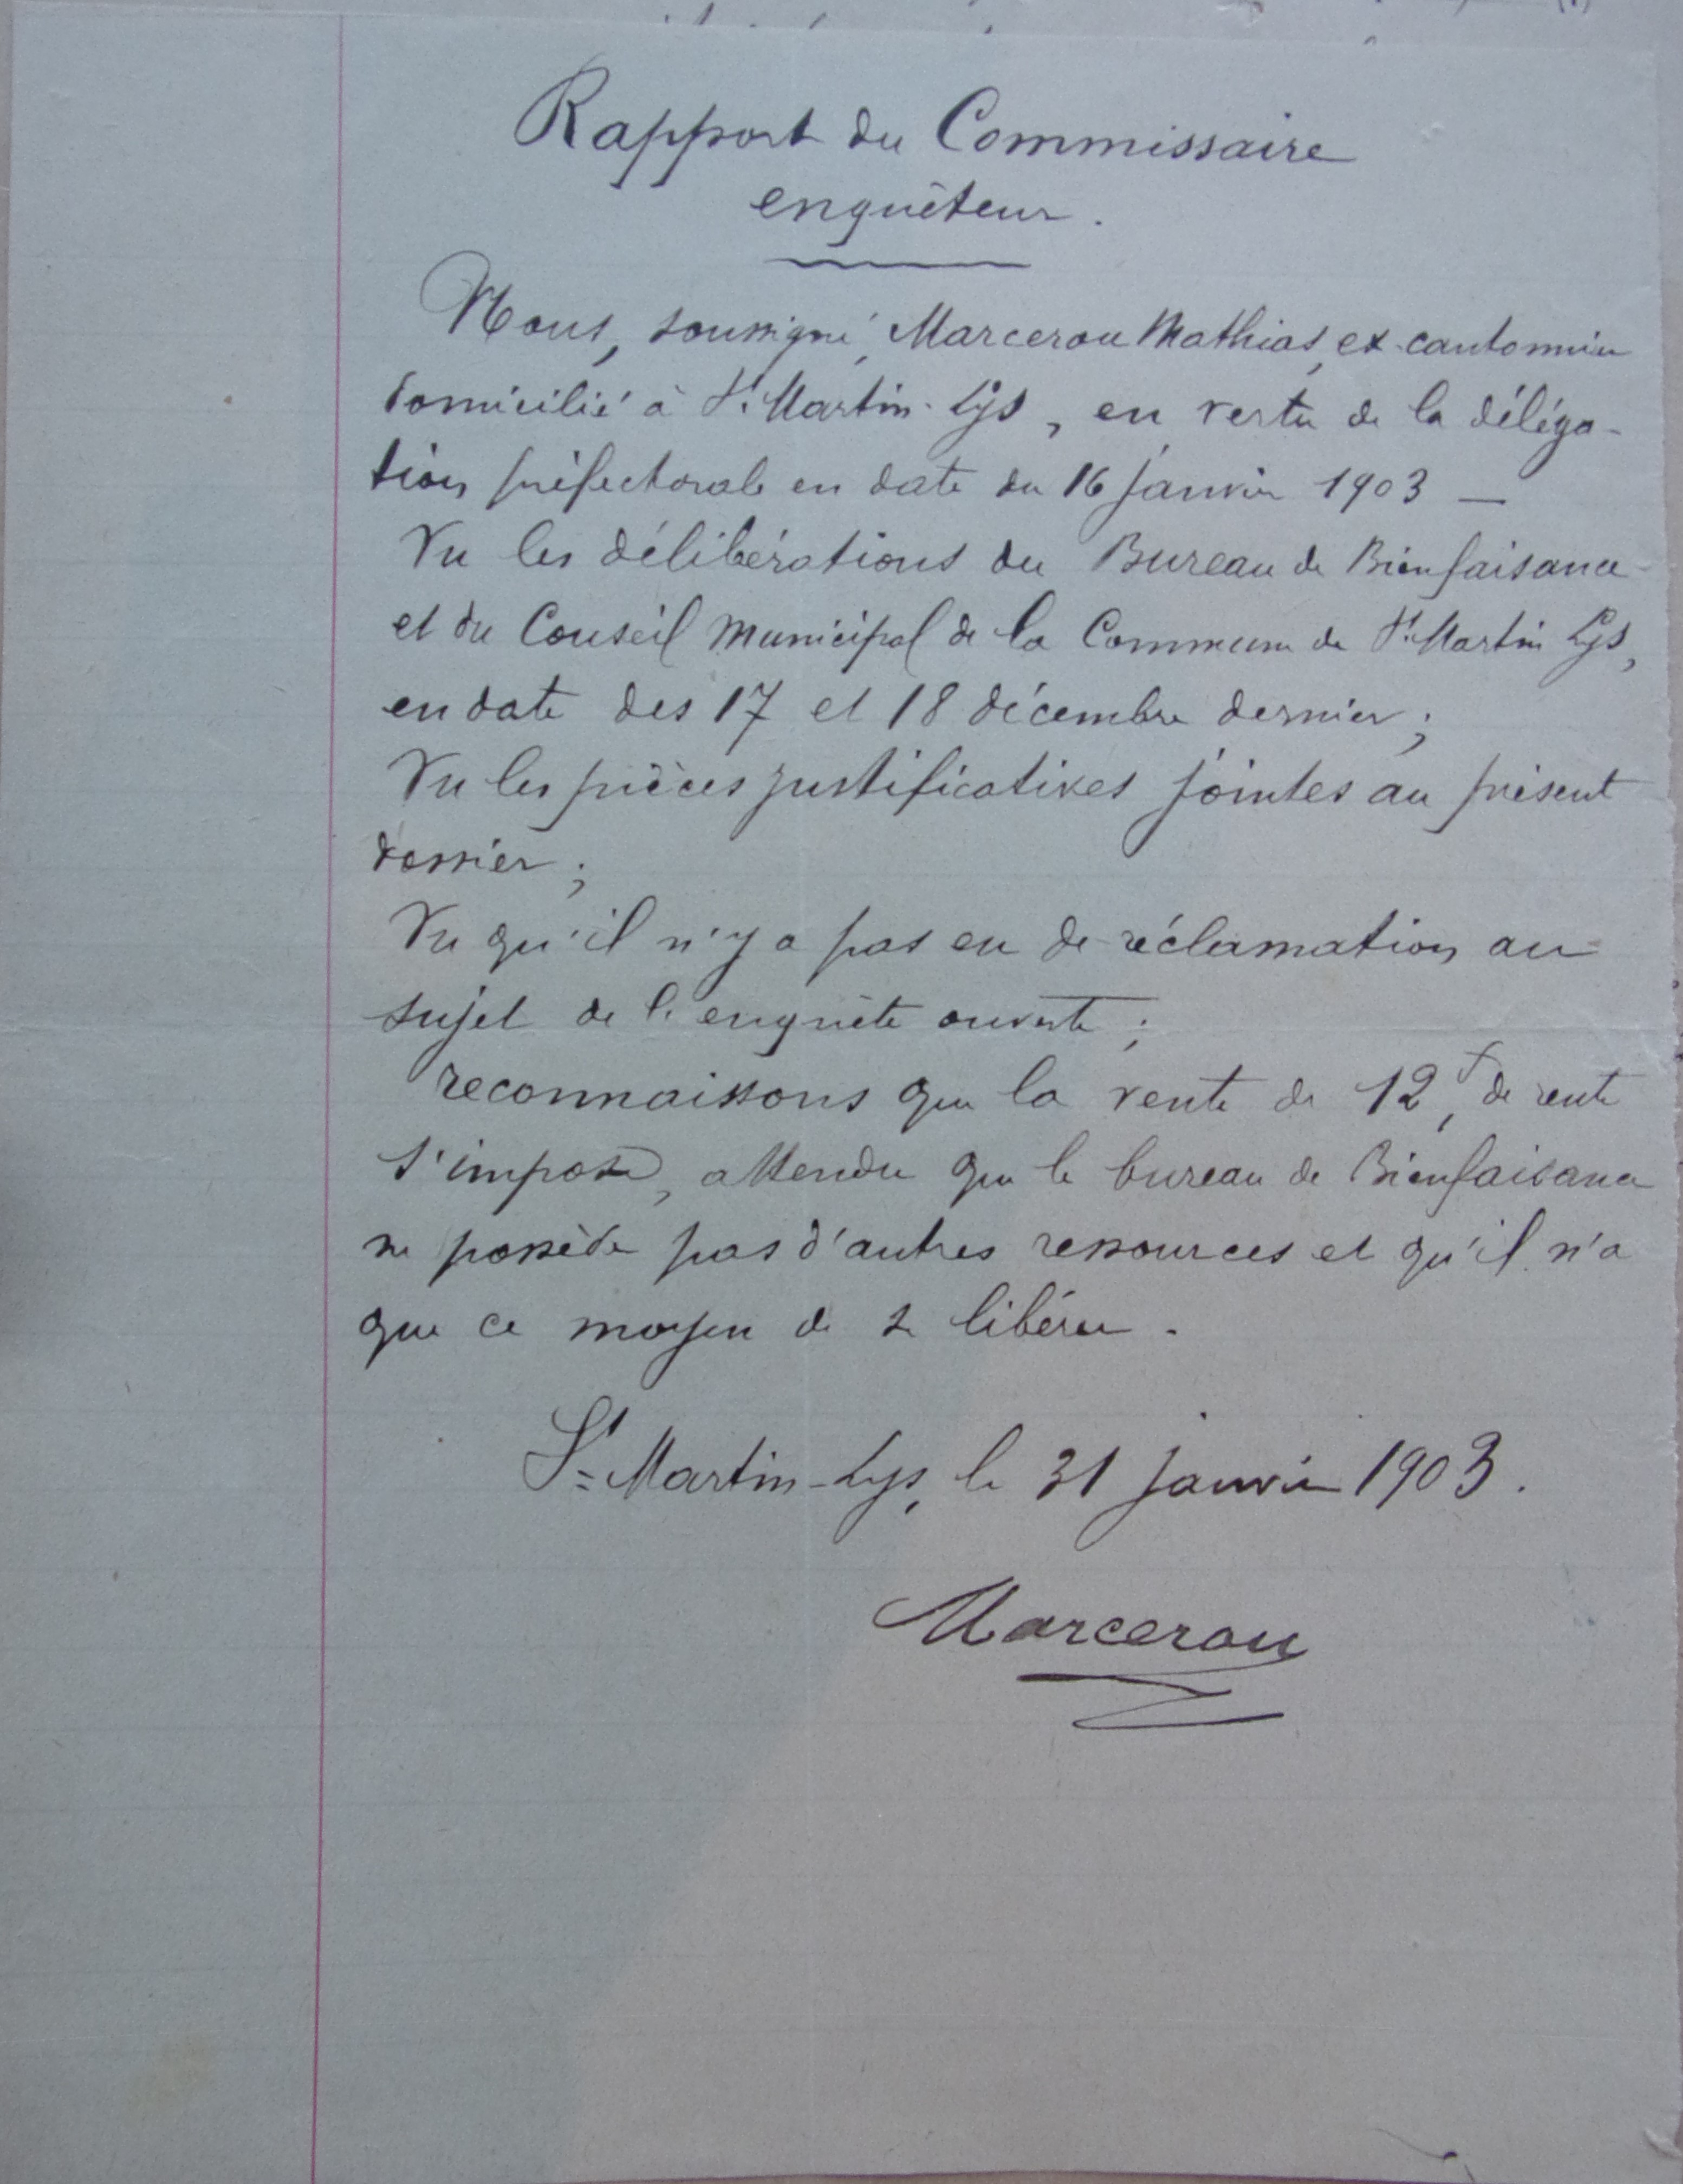 Rapport du Commissaire
enquêteur.
Nous, soussigné, Marcerou Mathias, ex-cantonnier
domicilié à St Martin-Lys, en vertu de la déléga-
tion préfectorale en date du 16 janvier 1903 —
Vu les délibérations du Bureau de Bienfaisance
et du Conseil Municipal de la Commune de St Martin Lys,
en date des 17 et 18 décembre dernier ;
Vu les pièces justificatives jointes au présent
dossier ;
Vu qu'il n'y a pas eu de réclamation au
sujet de l'enquête ouverte ;
reconnaissons que la vente de 12f, de rente
s'impose, attendu que le bureau de Bienfaisance
ne possède pas d'autres ressources et qu'il n'a
que ce moyen de se libérer.
St Martin-Lys, le 31 janvier 1903.
Marcerou